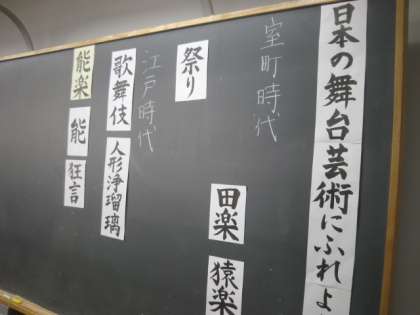 日本の舞台芸術にふれよ
室町時代
祭り
田楽
猿楽
江戸時代
歌舞伎
人形浄瑠璃
能楽
能
狂言